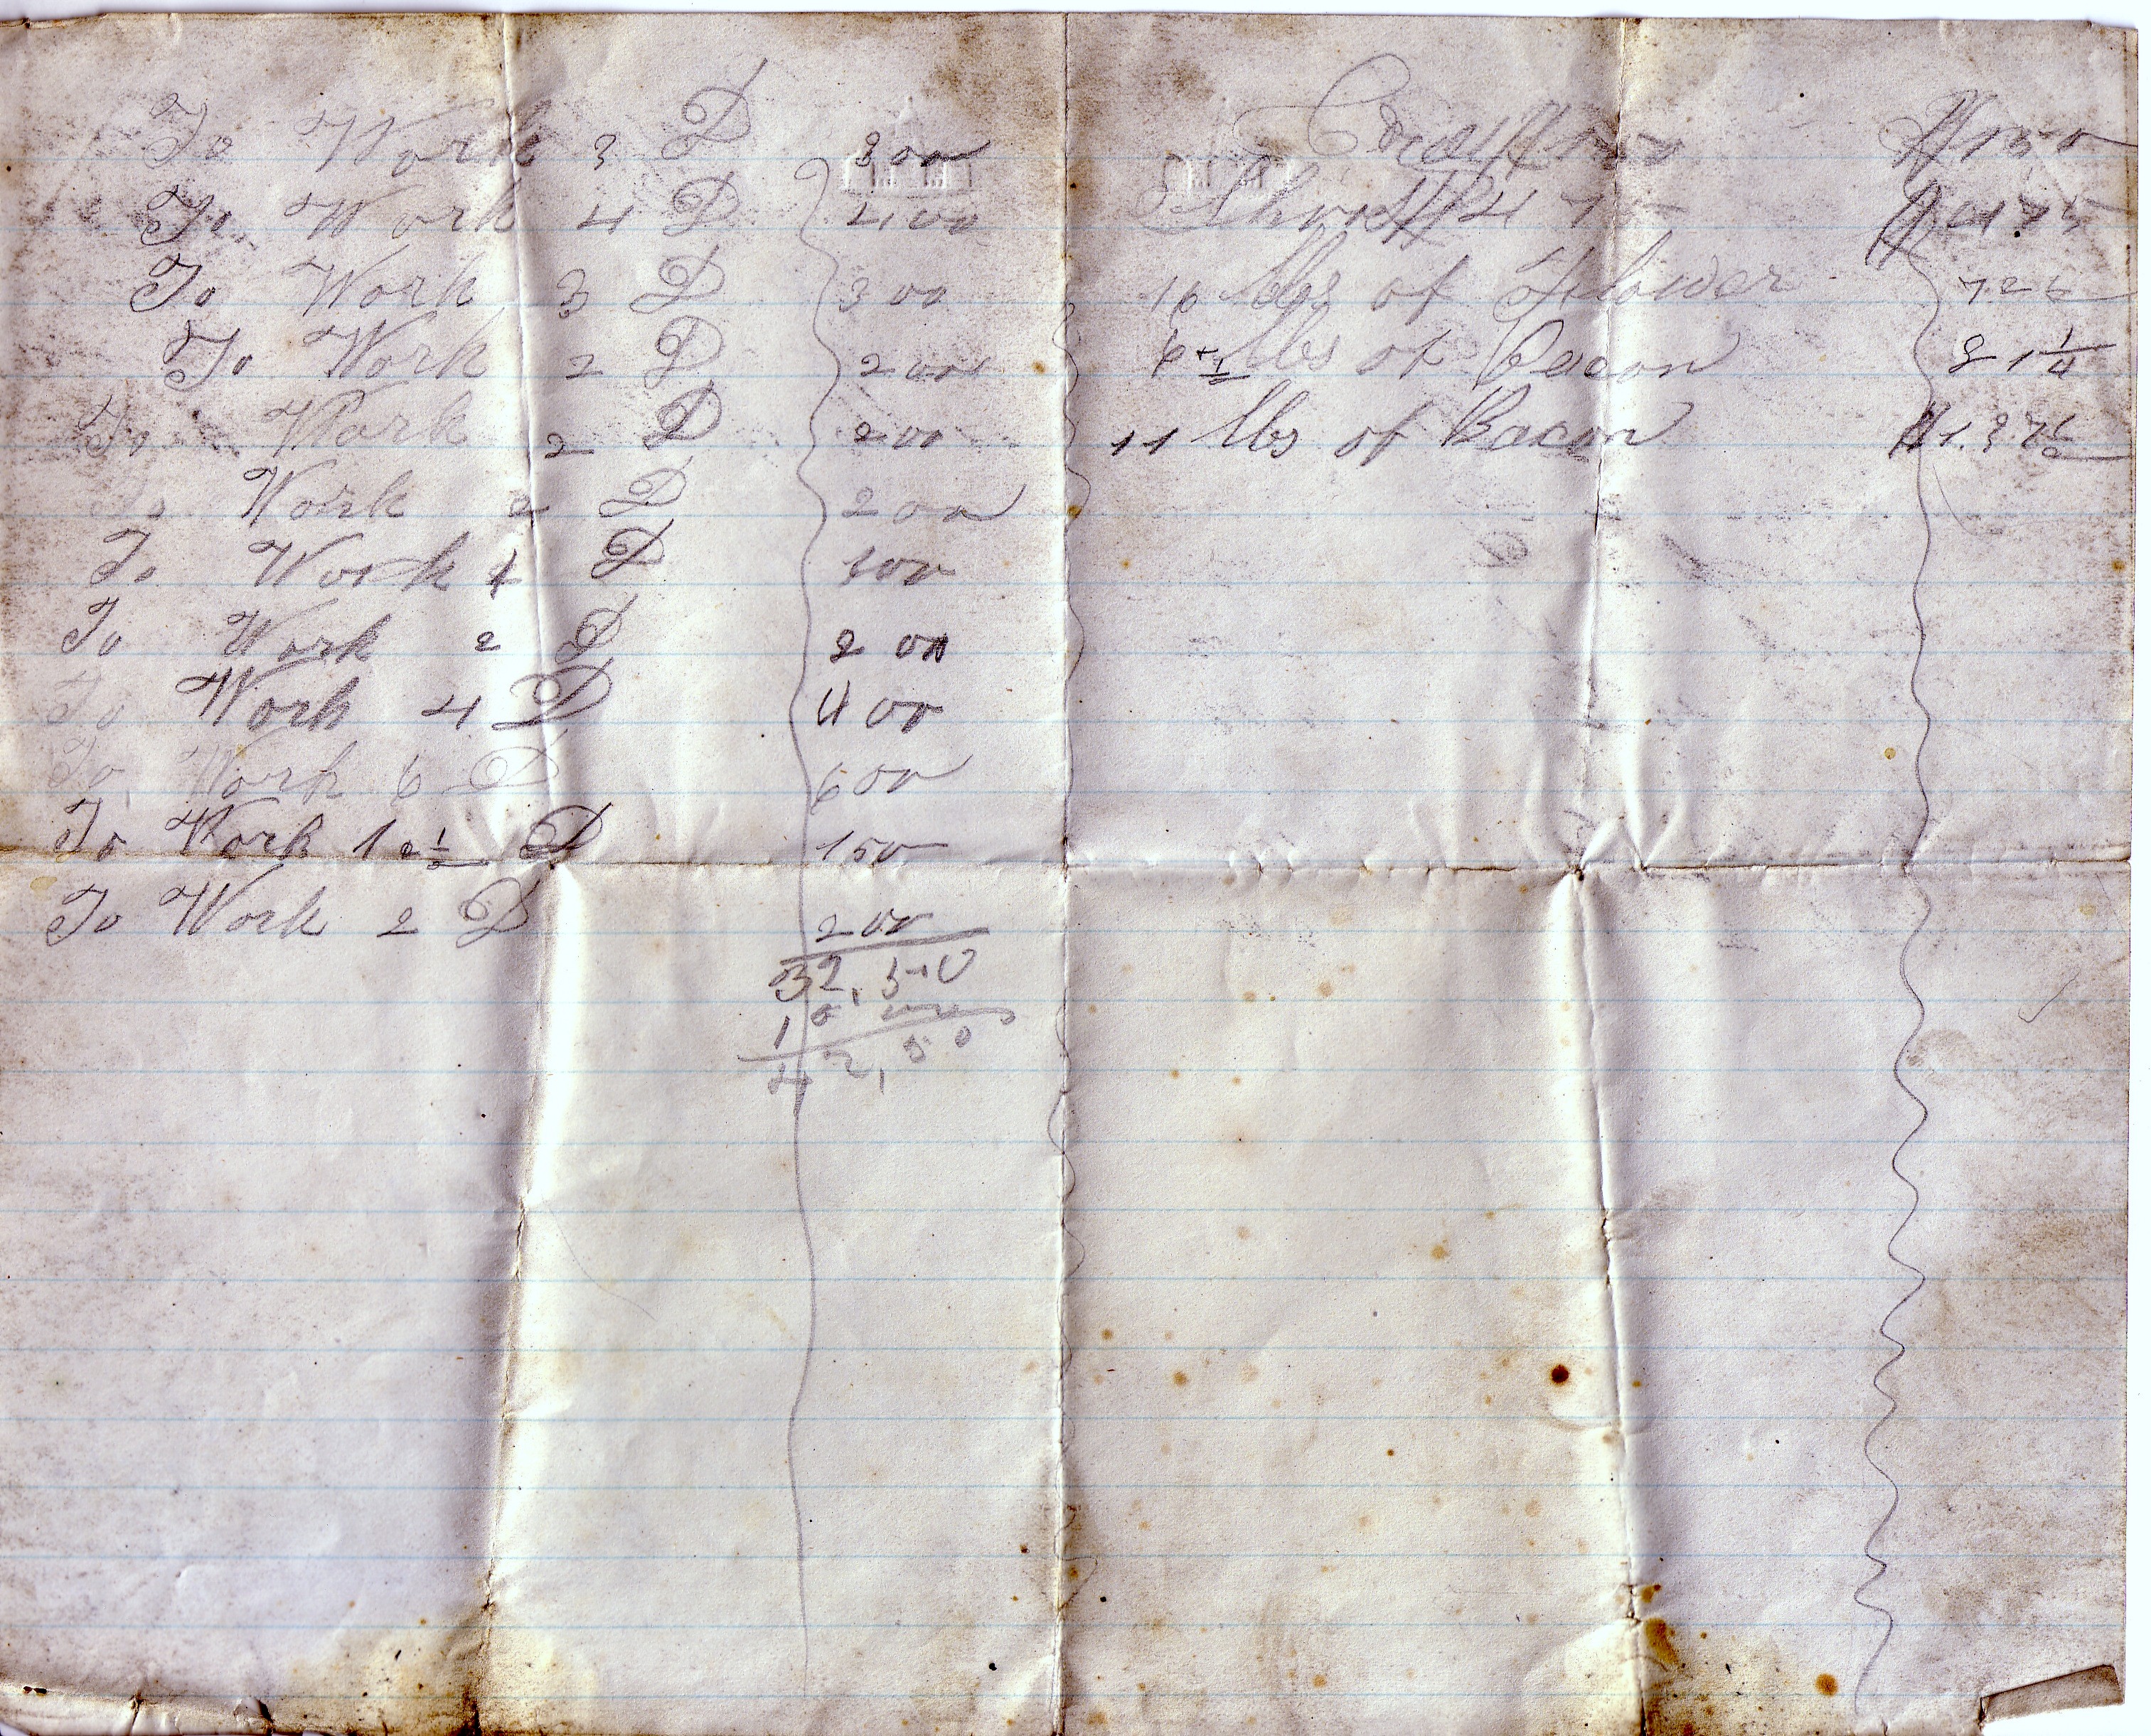 To Work 3 D 300
To Work 4 D 400
To Work 3 D 300
To Work 2 D 200
To Work 2 D 200
To Work 2 D 200
To Work 1 D 100
To Work 2 D 2 00
To Work 4 D 4 00
To Work 6 D 6 00
To Work 1 1/2 D 150
To Work 2 D 200
32,50
10 00
42,50
16 lbs of Flower
lbs of Bacon 8 1 1/4
11 lbs of Bacon